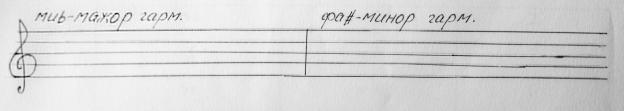 миь-мажор гарм. фа#-минор гарм.